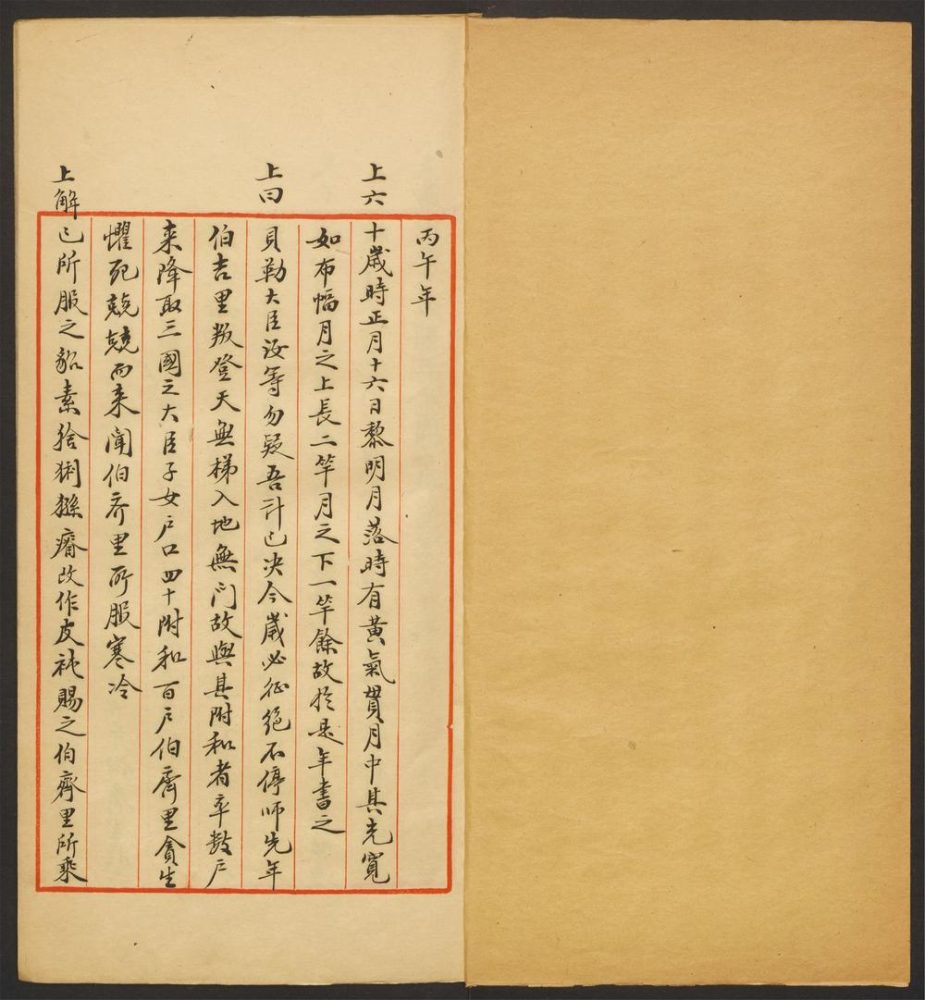 丙午年
上六十歲時正月十六日黎明月落時有黃氣貫月中其光寬
如布幅月之上長二竿月之下一竿餘故於是年書之
上曰貝勒大臣汝等勿疑吾計已决今歲必征絕不停師先年
伯吉里叛登天無梯入地無门故與其附和者率数户
来降取三國之大臣子女户口四十附和百户伯齊里貪生
懼死兢兢而来闻伯齐里所服寒冷
上解已所服之貂素猞猁猻瘠改作皮袍賜之伯齊里所乘